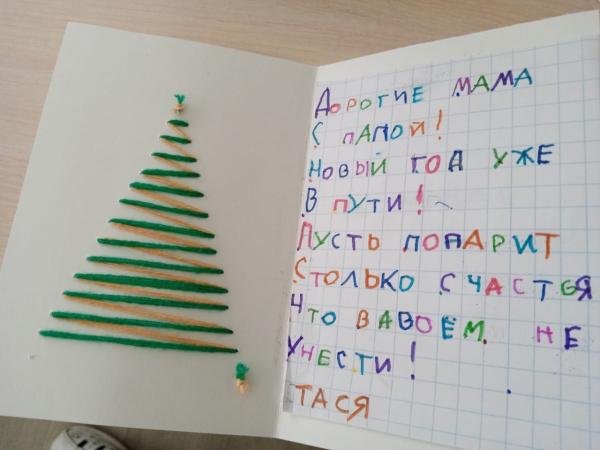 Дорогие мама
с папой!
Новый год уже
в пути!
Пусть попарит
столько счастья
что вавоём не
унести!
Тася